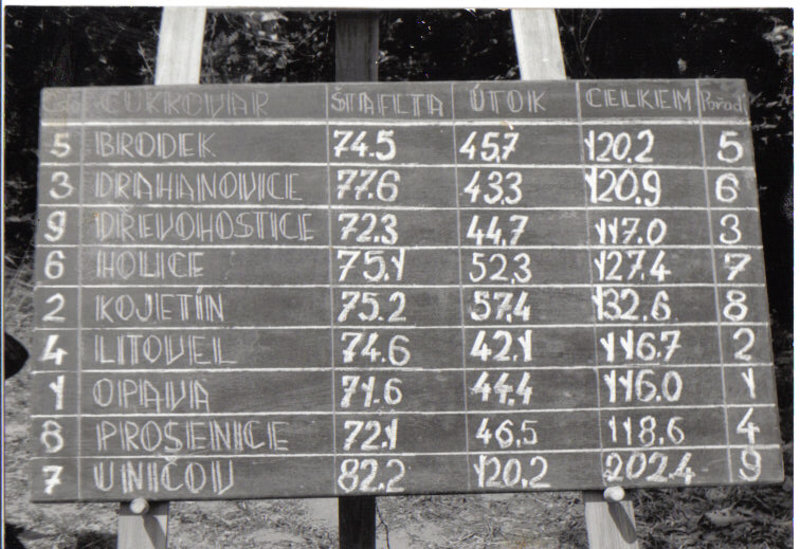 CUKROVAR ŠTAFETA ÚTOK CELKEM Pořadí
5 BRODEK 74.5 45.7 120.2 5
3 DRAHANOVICE 77.6 43.3 120.9 6
9 DŘEVOHOSTICE 72.3 44.7 117.0 3
6 HOLICE 75.1 52.3 127.4 7
2 KOJETÍN 75.2 57.4 132.6 8
4 LITOVEL 74.6 42.1 116.7 2
1 OPAVA 71.6 44.4 116.0 1
8 PROSENICE 72.1 46.5 118.6 4
7 UNIČOV 82.2 120.2 202.4 9